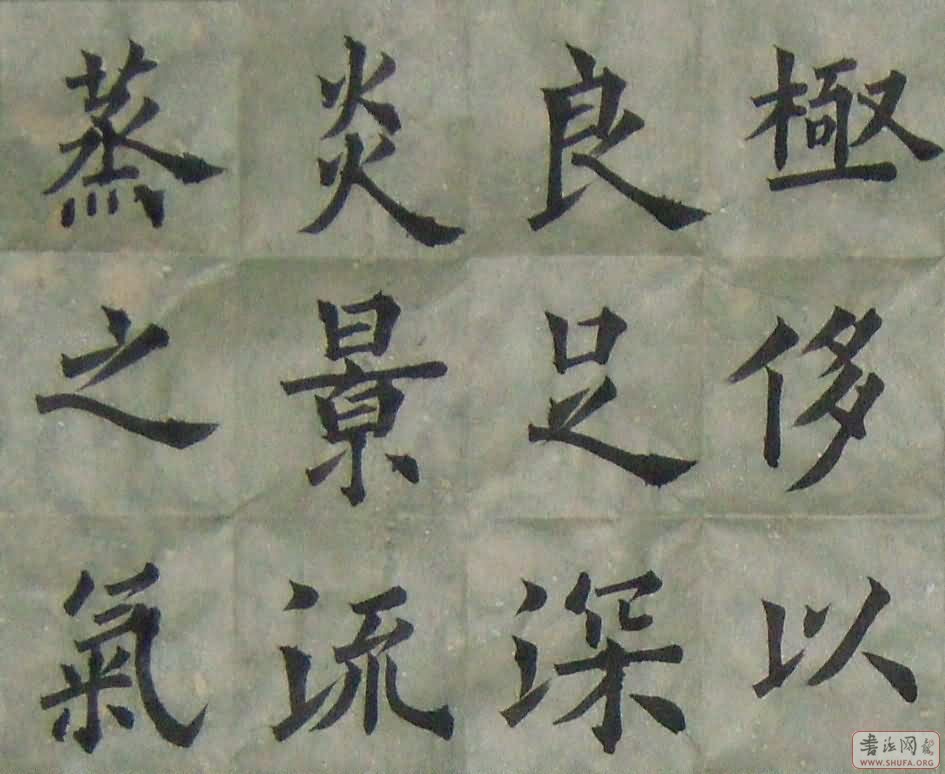 極侈以
良足深
炎景流
蒸之氣
书法网
WWW.SHUFA.ORG